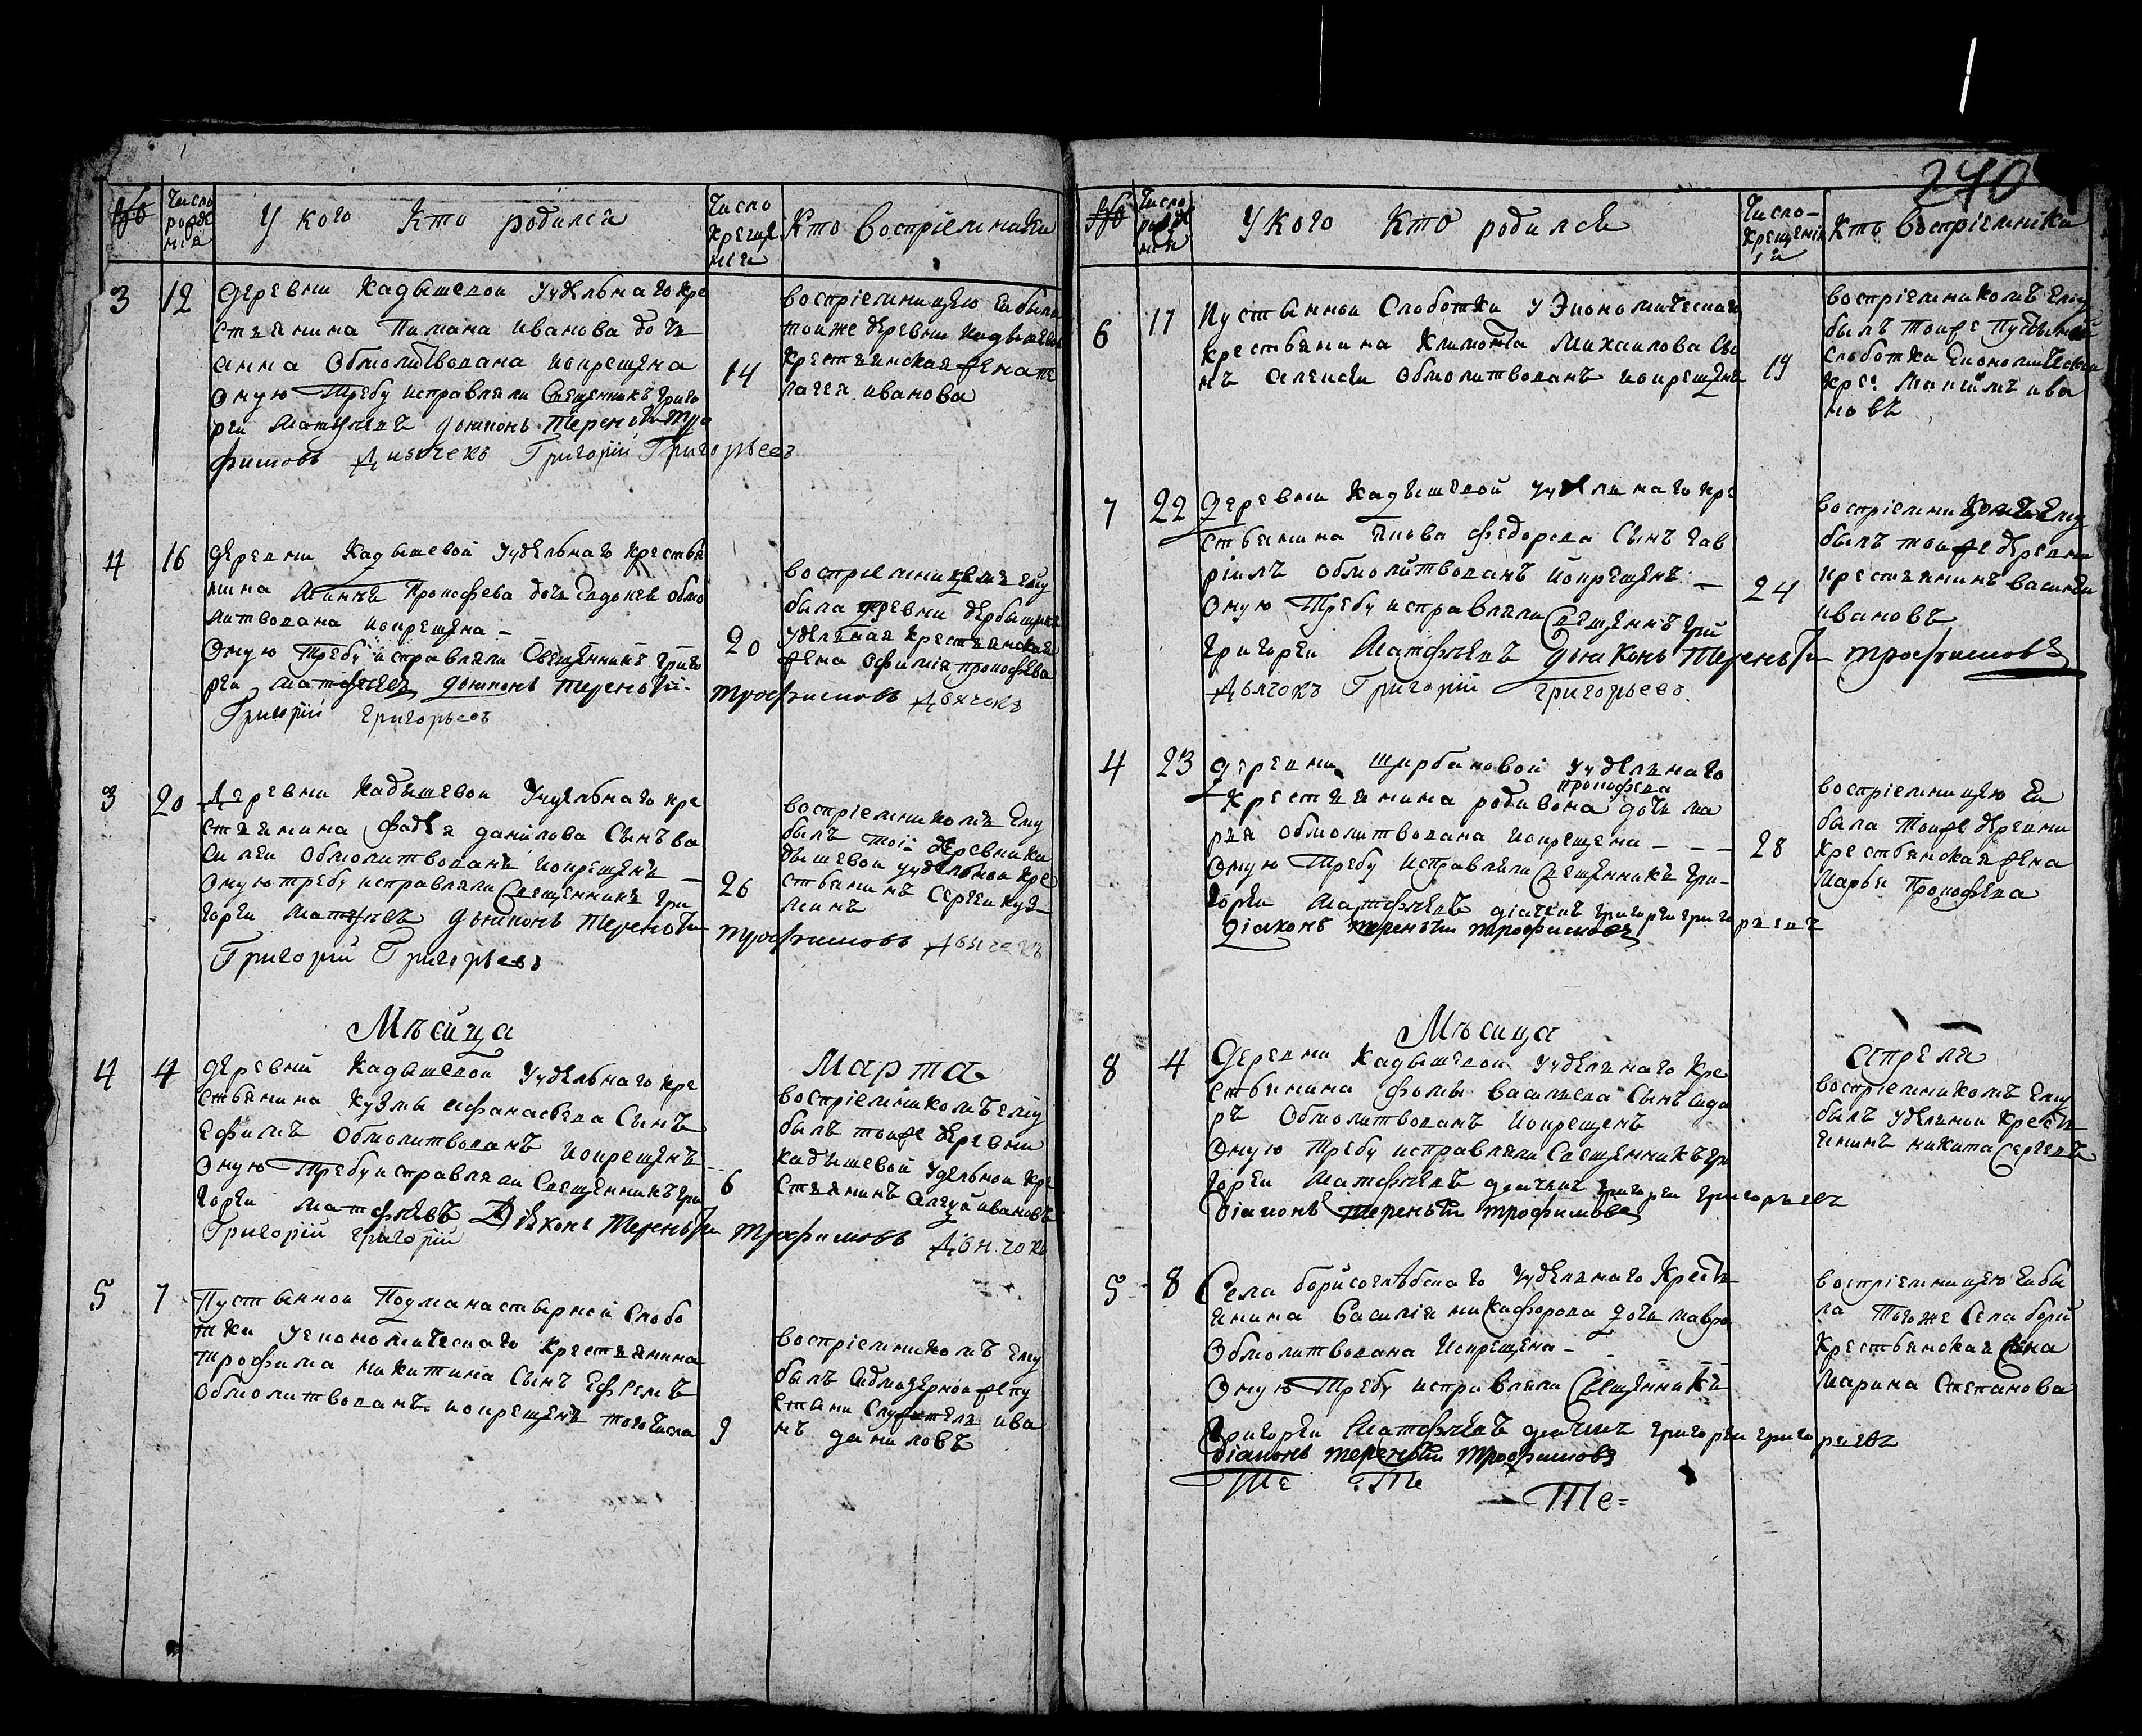 240
№
Число рожде нія
У кого Кто родился
Число крещє нія
Кто воспріемники
3 12
Деревни Кадышевой Удѣльнаго кре
стьянина Пимана Иванова дочь
Анна Обмолитвована ИОкрещена
Оную Требу исправляли Священникъ Григо
рей Матфѣевъ дьяконъ Терентїи Тро
фимовъ Дьячекъ Григорій Григорьевъ
14
воспріемницею Ей была
тойже деревни Кадышевой
Крестьянская жена пе
лагея иванова
4 16
деревни Кадышевой Удѣльнаго крестья
нина Прокофева дочь Евдокея Обмо
литвована иокрещена -
Оную Требу исправляли Священникъ Григо
рей Матфеевъ дьяконъ Терентїи
Трофимовъ Дьячекъ
Григорій Григорьевъ
20
воспріемницею ему
была деревни дербышки
Удѣлная Крестьянская
жена Офимія прокофьева
3 20
Деревни Кадышевой Удѣльнаго кре
стьянина Фадѣя данилова Сынъ ва
силеи Обмолитвованъ иокрещенъ
Оную требу исправляли Священникъ Гри
горей Матфѣевъ дьяконъ Терентїи
Трофимовъ Дьячекъ
Григорій Григорьевъ
26
воспріемникомъ Ему
былъ той деревни Ка
дышевой удѣльной кре
стьянинъ Сергеи куз
минъ
Мѣсяца Марта
4 4
Деревни Кадышевой Удѣльнаго кре
стьянина Кузмы Афанасьева Сынъ
Ефимъ Обмолитвованъ Иокрещенъ
Оную Требу исправляли Священникъ Гри
горей Матфѣевъ Дьяконъ Терентїи Трофимовъ Дьячокъ
Григорій Григорій
6
воспріемникомъ ему
былъ тойже деревни
Кадышевой Удѣльной Кре
стьянинъ ивановъ
5 7
Пустынной Подманастырной Слобо
тки Уекономическаго Крестьянина
Трофима Никитина Сынъ Ефремъ
Обмолитвованъ иокрещенъ того числа
9
воспріемникомъ ему
былъ Седмиезерной пу
стыни Служитель ива
нъ даниловъ
№
Число рожде нія
У кого Кто родился
Число крещенія
Кто Воспріемники
6 17
Пустынной Слоботки У Экономическаго
крестьянина Климонта Михаилова Сы
нъ Алексеи Обмолитвованъ иокрещенъ
19
воспріемникомъ Ему
былъ тойже Пустынной
Слоботки Економической
Крес: Максимъ ива
новъ
7 22
Деревни Кадышевой Удѣлнаго кре
стьянина Якова Федорова Сынъ Гав
риилъ Обмолитвованъ иокрещенъ -
Оную Требу исправляли Священникъ Гри
Григореи Матфѣевъ дьяконъ Терентїи Трофимовъ
Дьячокъ Григорій Григорьевъ.
24
воспріемникомъ Ему
былъ тойже деревни
крестьянинъ Василеи
ивановъ
4 23
деревни Щербаковой Удѣлнаго
прокофева
Крестьянина родивона дочь ма
рья Обмолитвована иокрещена - - -
Оную Требу Исправляли Священникъ Гри-
горей Матфѣевъ діячекъ григореи григорьевъ
Діаконъ терентїи трофимовъ
28
воспріемницею Ей
была Тойже деревни
Крестьянская жена
Марья Прокофева
Мѣсяца Апреля
8 4
Деревни Кадышевой Удѣлнаго Кре
стьянина Фомы василева Сынъ Сидо
ръ Обмолитвованъ Иокрещенъ
Оную Требу исправляли Священникъ Гри
горей Матфѣевъ дьячекъ Григореи Григорьевъ
діаконъ терентїи трофимовъ
воспріемникомъ Ему
былъ Удѣлной Кресть
янинъ никита Сергеевъ
5 8
Села борисоглѣбскаго Удѣлнаго Кресть
янина Василія никифорова дочь мавра
Обмолитвована Икрещена -
Оную Требу исправляли Священникъ
Григореи Матфѣевъ дьячекъ григореи григорьевъ
діаконъ терентїи трофимовъ
воспріемницею Ей бы
ла Тогоже Села бори
Крестьянская жена
Марина Степанова
Те Те
Те=